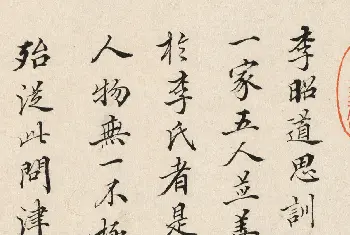 李昭道思訓
一家五人並善
於李氏者是
人物無一不極
殆從此問津